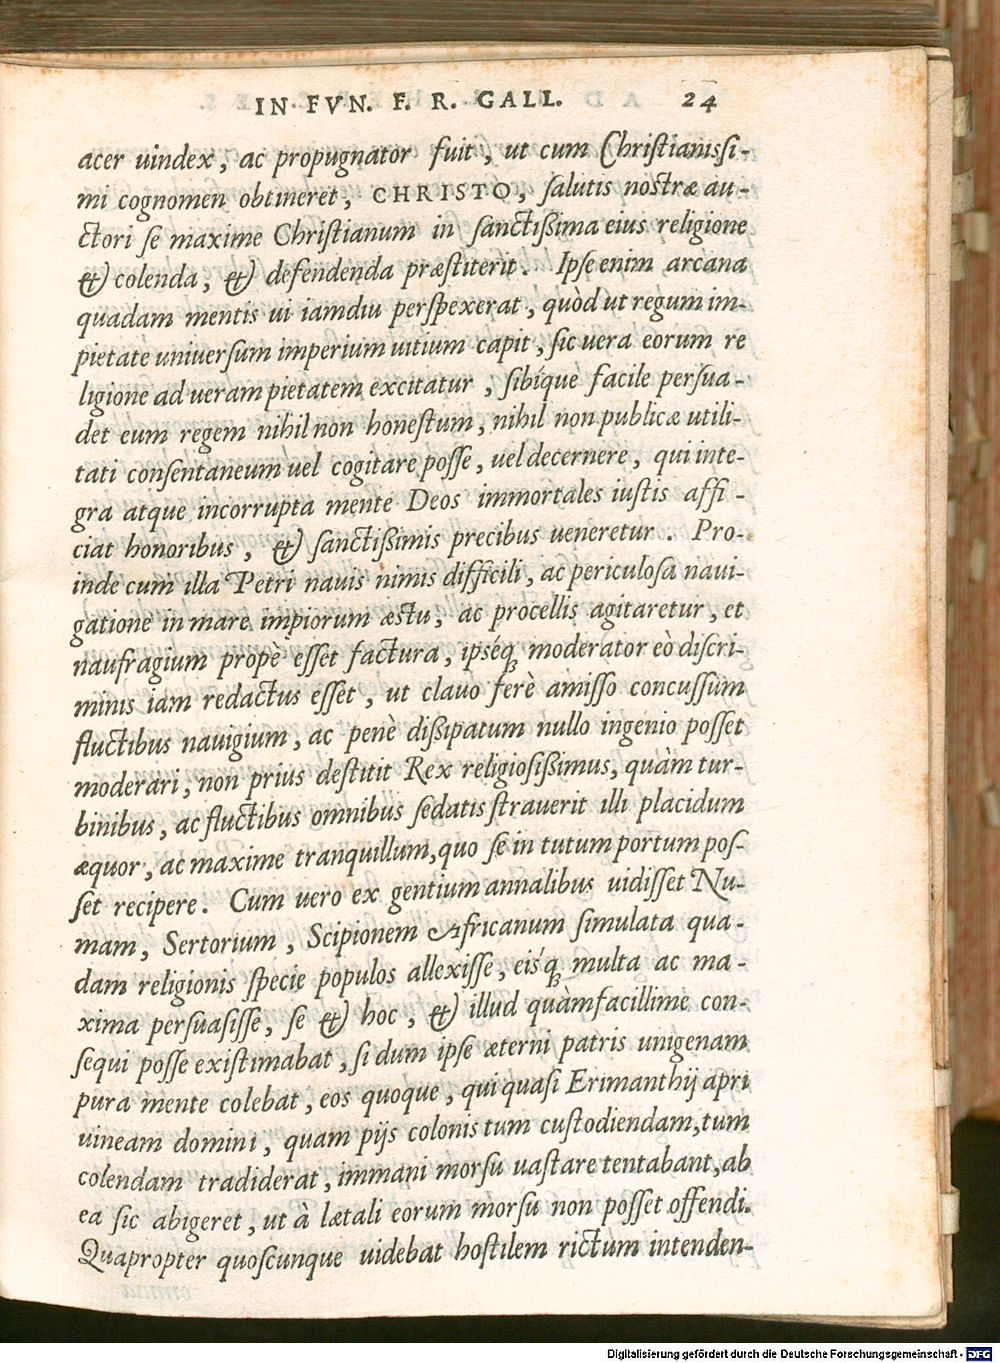 IN FVN. F. R. GALL. 24
acer uindex, ac propugnator fuit, ut cum Christianissi-
mi cognomen obtineret, CHRISTO, salutis nostræ au-
ctori se maxime Christianum in sanctißima eius religione
& colenda, & defendenda præstiterit. Ipse enim arcana
quadam mentis ui iamdiu perspexerat, quòd ut regum im-
pietate uniuersum imperium uitium capit, sic uera eorum re
ligione ad ueram pietatem excitatur, sibíque facile persua-
det eum regem nihil non honestum, nihil non publicæ utili-
tati consentaneum uel cogitare posse, uel decernere, qui inte-
gra atque incorrupta mente Deos immortales iustis affi-
ciat honoribus, & sanctißimis precibus ueneretur. Pro-
inde cum illa Petri nauis nimis difficili, ac periculosa naui-
gatione in mare impiorum æstu, ac procellis agitaretur, et
naufragium propè esset factura, ipséq; moderator eò discri-
minis iam redactus esset, ut clauo ferè amisso concussum
fluctibus nauigium, ac penè dißipatum nullo ingenio posset
moderari, non prius destitit Rex religiosißimus, quàm tur-
binibus, ac fluctibus omnibus sedatis strauerit illi placidum
æquor, ac maxime tranquillum, quo se in tutum portum pos-
set recipere. Cum uero ex gentium annalibus uidisset Nu-
mam, Sertorium, Scipionem Africanum simulata qua-
dam religionis specie populos allexisse, eisq́; multa ac ma-
xima persuasisse, se & hoc, & illud quàm facillime con-
sequi posse existimabat, si dum ipse æterni patris unigenam
pura mente colebat, eos quoque, qui quasi Erimanthij apri
uineam domini, quam pijs colonis tum custodiendam, tum
colendam tradiderat, immani morsu uastare tentabant, ab
ea sic abigeret, ut à lætali eorum morsu non posset offendi.
Quapropter quoscunque uidebat hostilem rictum intenden-
Digitalisierung gefördert durch die Deutsche Forschungsgemeinschaft - DFG